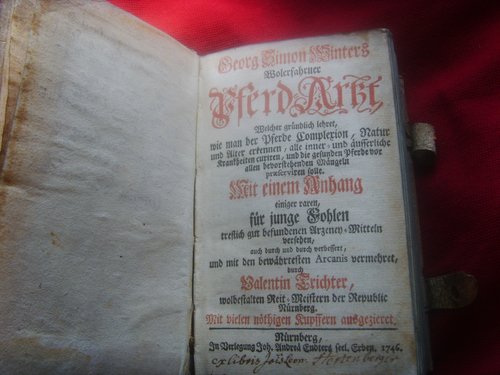 Georg Simon Winters
Wolerfahrner
Pferd-Artzt,
Welcher gründlich lehret,
wie man der Pferde Complexion, Natur
und Alter erkennen, alle inner- und äusserliche
Kranckheiten curiren, und die gesunden Pferde vor
allen bevorstehenden Mängeln
præserviren solle.
Mit einem Anhang
einiger raren,
für junge Fohlen
treflich gut befundenen Artzeney-Mitteln
versehen,
auch durch und durch verbessert,
und mit den bewährtesten Arcanis vermehret,
durch
Valentin Trichter,
wolbestalten Reit-Meistern der Republic
Nürnberg.
Mit vielen nöthigen Kupffern ausgezieret.
Nürnberg,
In Verlegung Joh. Andreä Endters seel. Erben. 1746.
ex libris